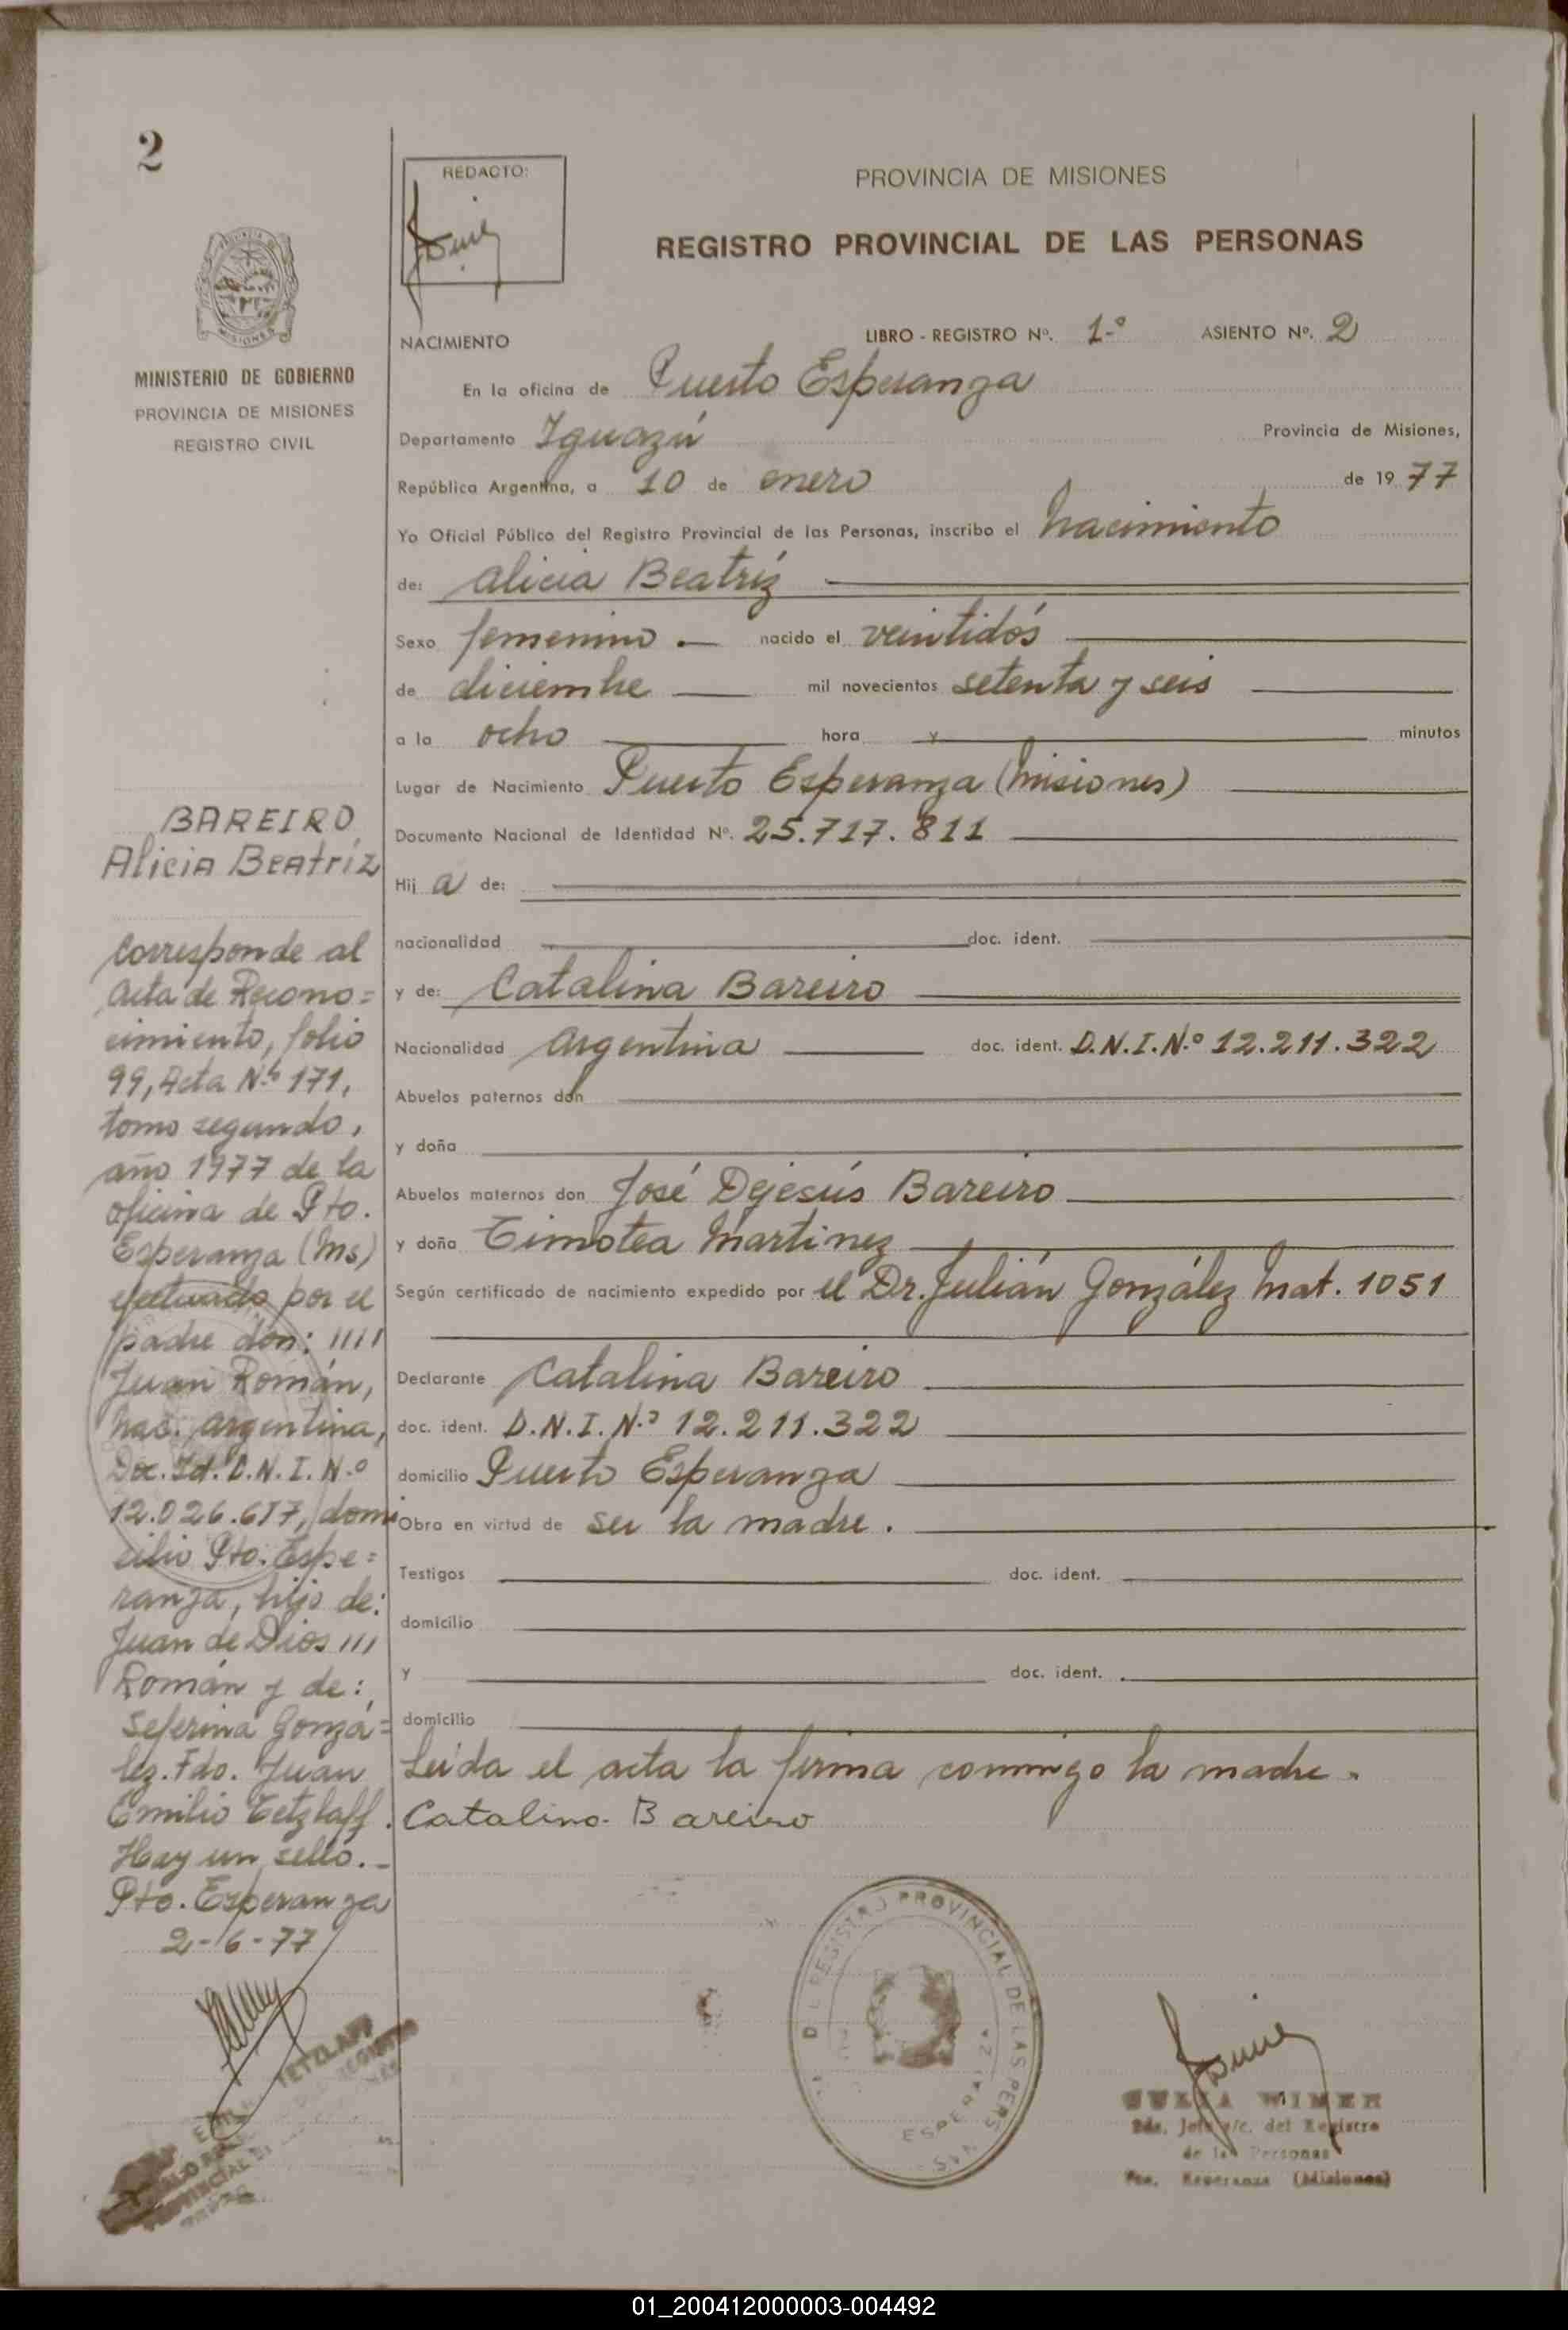 2
REDACTO:
PROVINCIA DE MISIONES
REGISTRO PROVINCIAL DE LAS PERSONAS
MINISTERIO DE GOBIERNO
PROVINCIA DE MISIONES
REGISTRO CIVIL
NACIMIENTO
LIBRO - REGISTRO Nº. 1-º ASIENTO Nº. 2
En la oficina de Puerto Esperanza
Departamento Iguazú Provincia de Misiones,
República Argentina, a 10 de enero de 19 77
Yo Oficial Público del Registro Provincial de las Personas, inscribo el nacimiento
de: Alicia Beatríz
Sexo femenino.— nacido el veintidós
de diciembre mil novecientos setenta y seis
a la ocho hora y minutos
Lugar de Nacimiento Puerto Esperanza (Misiones)
Documento Nacional de Identidad Nº. 25.717.811
Hij a de:
nacionalidad doc. ident.
y de: Catalina Bareiro
Nacionalidad Argentina doc. ident. D.N.I.N.º 12.211.322
Abuelos paternos don
y doña
Abuelos maternos don José Dejesús Bareiro
y doña Timotea Martinez
Según certificado de nacimiento expedido por el Dr. Julián González Mat. 1051
Declarante Catalina Bareiro
doc. ident. D.N.I.N.º 12.211.322
domicilio Puerto Esperanza
Obra en virtud de ser la madre.
Testigos doc. ident.
domicilio
y doc. ident.
domicilio
Leída el acta la firma conmigo la madre.
Catalina Bareiro
BAREIRO
Alicia Beatríz
Corresponde al
acta de Recono=
cimiento, folio
99, Acta N.º 171,
tomo segundo,
año 1977 de la
oficina de Pto.
Esperanza (Ms)
efectuado por el
padre don: ////
Juan Román,
Nac. argentina,
Doc. Id. D.N.I.N.º
12.026.617, domi
cilio Pto. Espe=
ranza, hijo de:
Juan de Dios ///
Román y de:
Seferina Gonzá=
lez. Fdo. Juan
Emilio Tetzlaff.
Hay un sello.-
Pto. Esperanza
2-6-77
TETZLAFF
REGISTRO PROVINCIAL DE LAS PERSONAS
ESPERANZA
WIMER
2da. Jefe a/c. del Registro
de las Personas
Pto. Esperanza (Misiones)
01_200412000003-004492